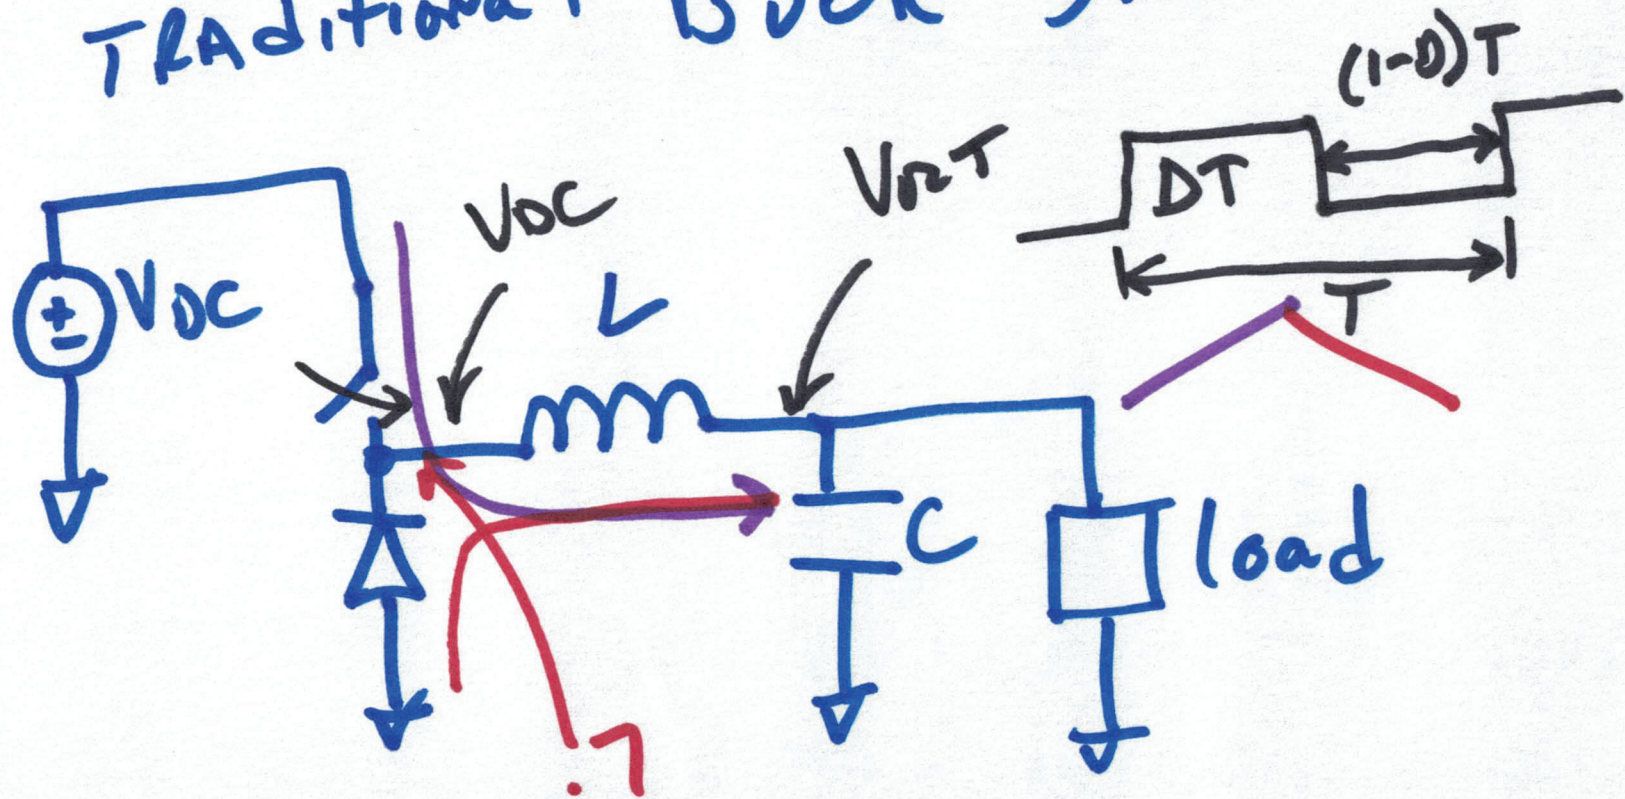 TRAditional Buck
(1-D)T
DT
T
VDC
VOUT
VDC
L
C
load
-.7